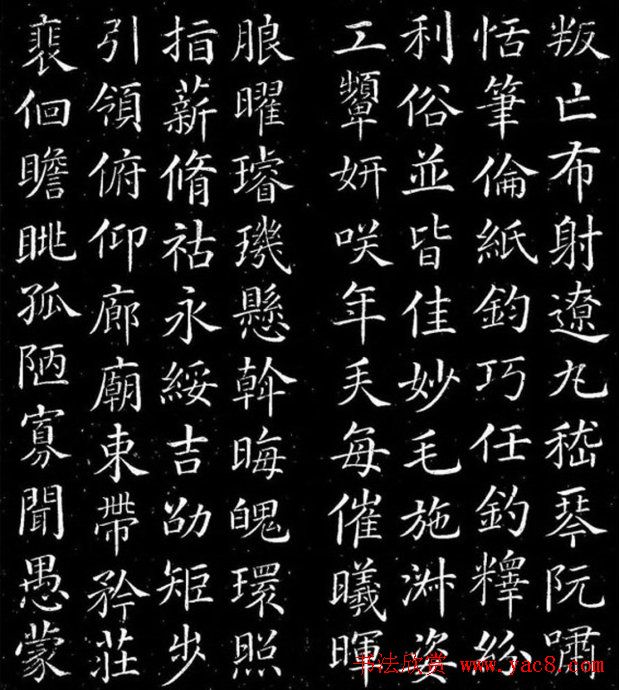 叛亡布射遼丸嵇琴阮嘯
恬筆倫紙鈞巧任釣釋紛
利俗並皆佳妙毛施淑姿
工顰妍咲年矢每催曦暉
朗曜璿璣懸斡晦魄環照
指薪脩祜永綏吉劭矩步
引領俯仰廊廟束帶矜莊
裵佪瞻眺孤陋寡聞愚蒙
书法欣赏 www.yac8.com